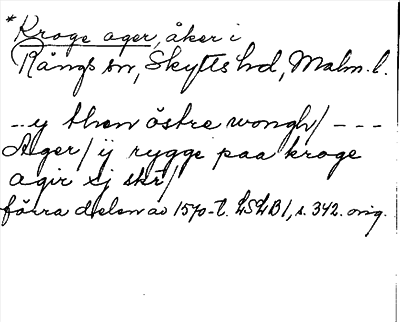 *Kroge ager, åker i
Rångs sn, Skytts hd, Malm. l.
... y then östre wongh/ - - -
Ager/ ij rygge paa kroge
agir xj skr/
förra delen av 1570-t. LSLB1, s. 342. orig.